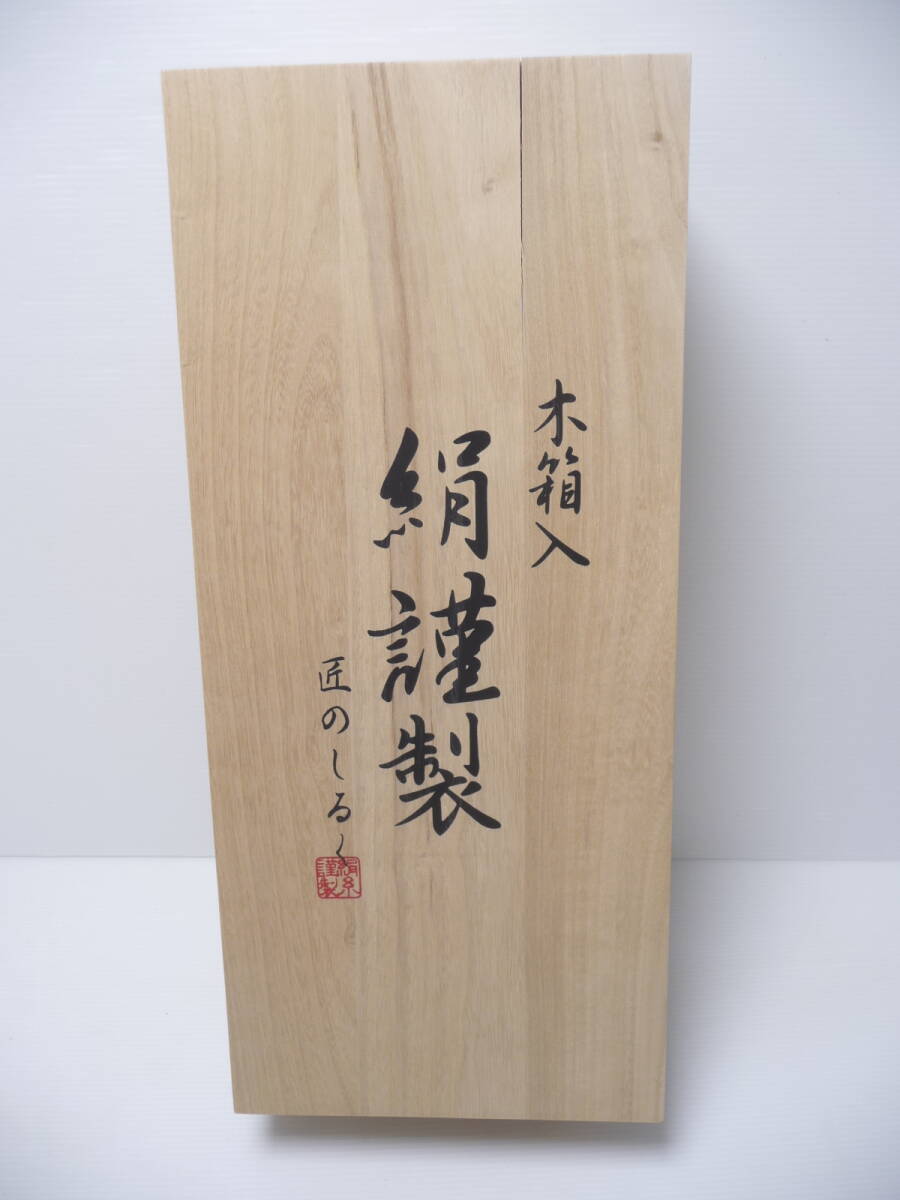 木箱入
絹謹製
匠のしるく
絹糸
謹製